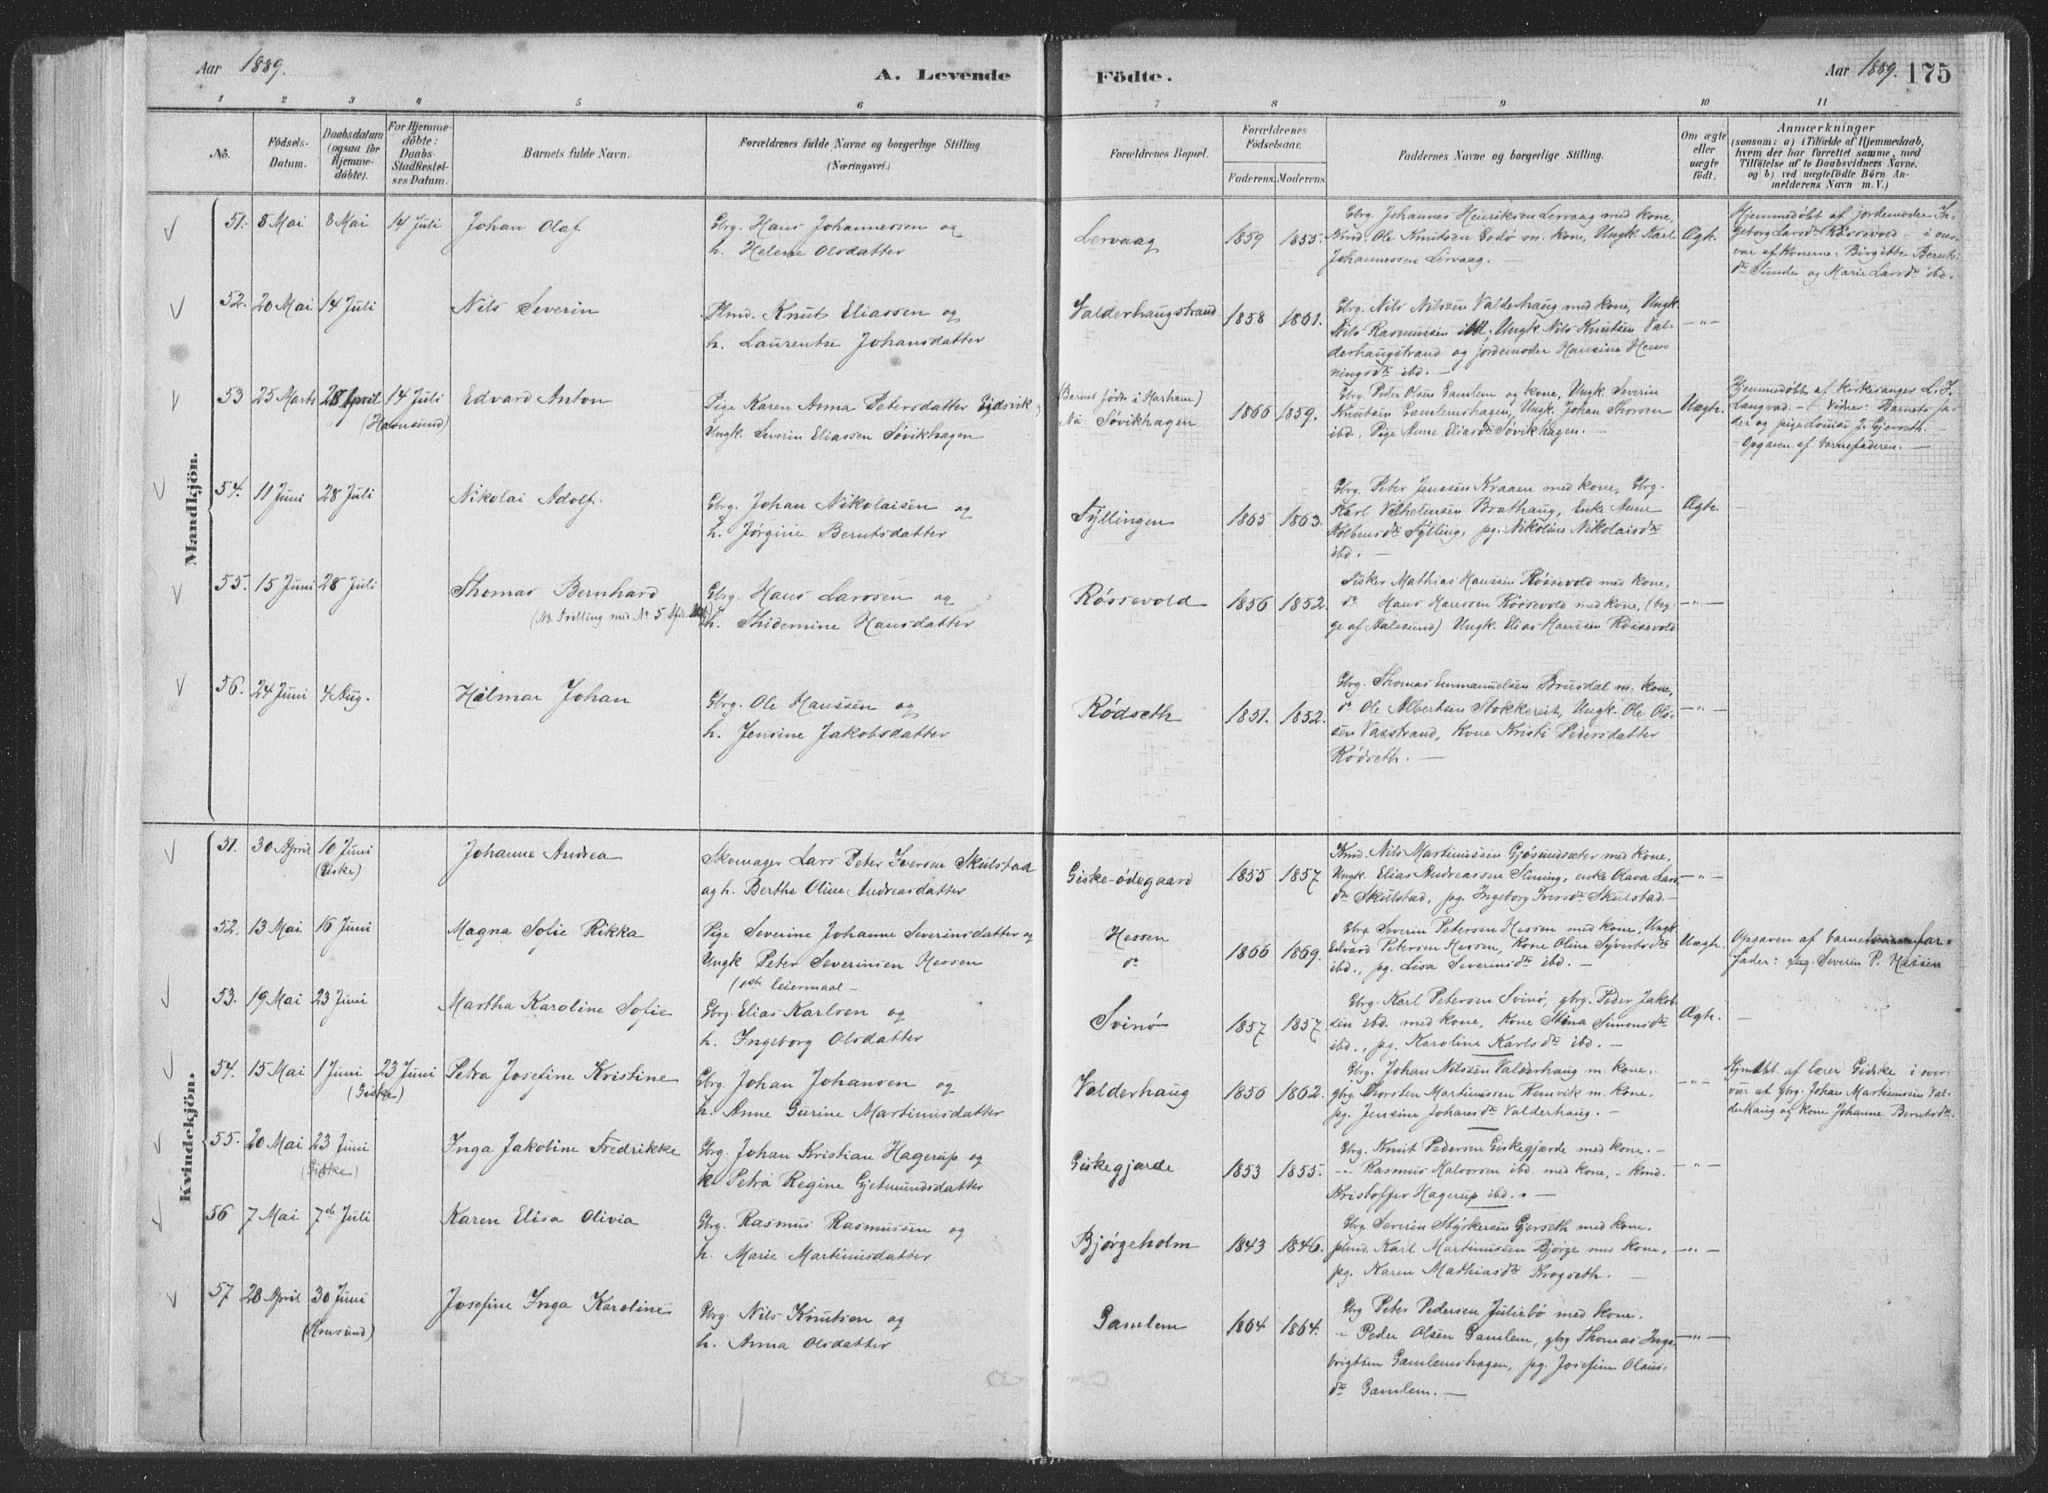 Aar 1889.
A. Levende
Födte.
Aar 1889. 175
1 2 3 4 5 6 7 8 9 10 11
No.
Födsels-Datum.
Daabsdatum (ogsaa for Hjemmedöbte).
For Hjemmedöbte: Daabs-Stadfæstelses Datum.
Barnets fulde Navn.
Forældrenes fulde Navne og borgerlige Stilling (Næringsvei).
Forældrenes Bopæl.
Forældrenes Födselsaar.
Faderens. Moderens.
Faddernes Navne og borgerlige Stilling.
Om ægte eller uægte födt.
Anmærkninger
(saasom: a) i Tilfælde af Hjemmedaab,
hvem der har forrettet samme, med
Tilföielse af to Daabsvidners Navne.
og b) ved uægtefödte Börn An-
melderens Navn m. V.)
Mandkjön.
51. 8 Mai 8 Mai 14 Juli Johan Olaf
Gbrg. Hans Johannessen og
h. Helene Olsdatter
Lervaag 1859 1855.
Gbrg. Johannes Henriksen Lervaag med kone,
Kmd. Ole Knutsen Godø m. kone, Ungk. Karl
Johannessen Lervaag.
Ægte.
Hjemmedøbt af jordemoder In-
geborg Larsdr Røssevold – i over-
vær af konerne: Birgitte Bernts-
dr Sunde og Marie Larsdr ibd.
52. 20 Mai 14 Juli Nils Severin
Plmd. Knut Eliassen og
h. Laurentse Johansdatter
Valderhaugstrand 1858 1861.
Gbrg. Nils Nilssen Valderhaug med kone, Ungk.
Nils Rasmussen ibd., Ungk. Nils Knutsen Val-
derhaugstrand og jordemoder Hansine Hen-
ningsdr ibd. –
–"–
53 25 Marts 28 April 14 Juli Edvard Anton
(Hamsund)
Pige Karen Anna Petersdatter Eidsvik og
Ungk. Severin Eliassen Søvikhagen
(Barnet født i Harham)
Nu Søvikhagen 1866 1859.
Gbrg. Peter Olsen Gamlem og kone, Ungk. Severin
Knutsen Gamlemshagen, Ungk. Johan Thorsen
ibd., Pige Anne Eliasdr Søvikhagen. –
Uægte.
Hjemmedøbt af kirkesanger L. J.
Langvad. – Vidner: Barnets fa-
der og pige Louise J. Gjerseth.
– Opgaven af barnefaderen. –
54. 11 Juni 28 Juli Nikolai Adolf.
Gbrg. Johan Nikolaisen og
h. Jørgine Berntsdatter
Fyllingen 1865 1863.
Gbrg. Peter Jenssen Kraam med kone, Gbrg.
Karl Vilhelmsen Brathaug, Enke Anne
Kolbensdr Fylling, pg. Nikoline Nikolaisdr
ibd. –
Ægte.
55. 15 Juni 28 Juli Thomas Bernhard
Gbrg. Hans Larssen og
h. Thidemine Hansdatter
Røssevold 1856 1852.
Fisker Mathias Hanssen Røssevold med kone,
dr Hans Hanssen Røssevold med kone, (beg-
ge af Aalesund) Ungk. Elias Hanssen Røssevold
–"–
56. 24 Juni 4 Aug. Hilmar Johan
Gbrg. Ole Hanssen og
h. Jensine Jakobsdatter
Rødseth 1851. 1852.
Gbrg. Thomas Emmanuelsen Brusdal m. kone,
do Ole Albertsen Stokkereit, Ungk. Ole Ol-
sen Vasstrand, Kone Kristi Pedersdatter
Rødseth. –
–"–
Kvindekjön.
51. 30 April 10 Juni Johanne Andrea
(Giske)
Skomager Lars Peter Iversen Skulstad
og h. Berthe Oline Andreasdatter
Giske-ødegaard 1855 1857
Kmd. Nils Martinussen Gjøsundsæter med kone,
Ungk. Elias Andreassen Slining, enke Olava Lars-
dr Skulstad, pg. Ingeborg Iversdr Skulstad. –
–"–
52. 13 Mai 16 Juni Magna Sofie Rikka
Pige Severine Johanne Severinsdatter og
Ungk Peter Severinsen Hessen
(1ste leiermaal –
Hessen
do 1866 1869.
Gbrg. Severin Petersen Hessen med kone, Ungk.
Edvard Petersen Hessen, Kone Oline Syvertsdr
ibd., pg. Lisa Severinsdr ibd. –
Uægte.
Opgaven af barnets far-
fader: Severin P. Hessen
53. 19 Mai 23 Juni Martha Karoline Sofie
Gbrg. Elias Karlsen og
h. Ingeborg Olsdatter
Svinø 1857 1857.
Gbrg. Karl Petersen Svinø, gbrg. Peder Jakob-
sen ibd. med kone, Kone Stina Simonsdr
ibd., pg. Karoline Karlsdr ibd. –
Ægte. –
54. 15 Mai 1 Juni 23 Juni Petra Josefine Kristine
(Giske)
Gbrg. Johan Johansen og
h. Anne Gurine Martinusdatter
Valderhaug 1856 1862.
Gbrg. Johan Nilssen Valderhaug m. kone.
gbrg. Thorsten Martinussen Remvik m. kone.
pg. Jensine Johansdr Valderhaug. –
–"–
Hjmdbt. af lærer Giske i over-
vær af gbrg. Johan Martinussen Val-
derhaug og kone Johanne Berntsdr.
55. 20 Mai 23 Juni Inga Jakobine Fredrikke
(Giske)
Gbrg. Johan Kristian Hagerup og
k. Petra Regine Gjetmundsdatter
Giskegjærde 1853 1855.
Gbrg. Knut Pedersen Giskegjærde med kone. –
–"– Rasmus Halvorsen ibd med kone, – kmd.
Kristoffer Hagerup ibd. –
–"–
56 7 Mai 7de Juli Karen Elisa Olivia
Gbrg. Rasmus Rasmussen og
h. Marie Martinusdatter
Bjørgeholm 1843 1846.
Gbrg. Severin Styrkersen Gjerseth med kone.
plmd. Karl Martinussen Bjørge med kone,
pg. Karen Mathiasdr Krogseth. –
–"–
57 28 April 30 Juni Josefine Inga Karoline
Gbrg. Nils Knutsen og
h. Anna Olsdatter
Gamlem 1864 1864.
Gbrg Peter Pedersen Juliebø med kone.
–"– Peder Olsen Gamlem, gbrg Thomas Inge-
brigtsen Gamlemshagen, pg. Josefine Olaus-
dr Gamlem. –
–"–